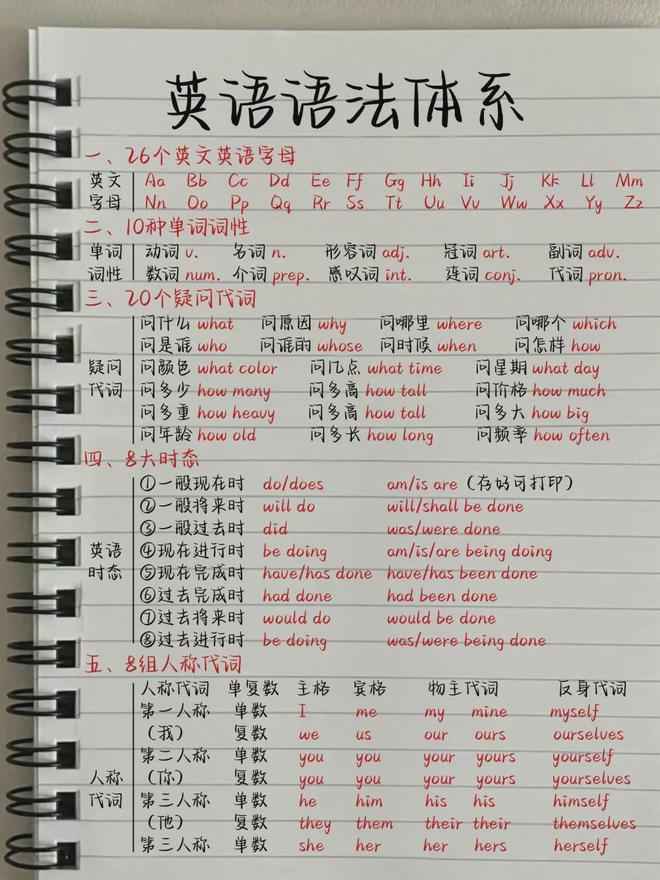 英语语法体系
一、26个英文英语字母
英文 Aa Bb Cc Dd Ee Ff Gg Hh Ii Jj Kk Ll Mm
字母 Nn Oo Pp Qq Rr Ss Tt Uu Vv Ww Xx Yy Zz
二、10种单词词性
单词 动词 v. 名词 n. 形容词 adj. 冠词 art. 副词 adv.
词性 数词 num. 介词 prep. 感叹词 int. 连词 conj. 代词 pron.
三、20个疑问代词
问什么 what 问原因 why 问哪里 where 问哪个 which
问是谁 who 问谁的 whose 问时候 when 问怎样 how
疑问 问颜色 what color 问几点 what time 问星期 what day
代词 问多少 how many 问多高 how tall 问价格 how much
问多重 how heavy 问多高 how tall 问多大 how big
问年龄 how old 问多长 how long 问频率 how often
四、8大时态
①一般现在时 do/does am/is are（存好可打印）
②一般将来时 will do will/shall be done
③一般过去时 did was/were done
英语 ④现在进行时 be doing am/is/are being doing
时态 ⑤现在完成时 have/has done have/has been done
⑥过去完成时 had done had been done
⑦过去将来时 would do would be done
⑧过去进行时 be doing was/were being done
五、8组人称代词
人称代词 单复数 主格 宾格 物主代词 反身代词
第一人称 单数 I me my mine myself
（我） 复数 we us our ours ourselves
第二人称 单数 you you your yours yourself
人称 （你） 复数 you you your yours yourselves
代词 第三人称 单数 he him his his himself
（他） 复数 they them their their themselves
第三人称 单数 she her her hers herself